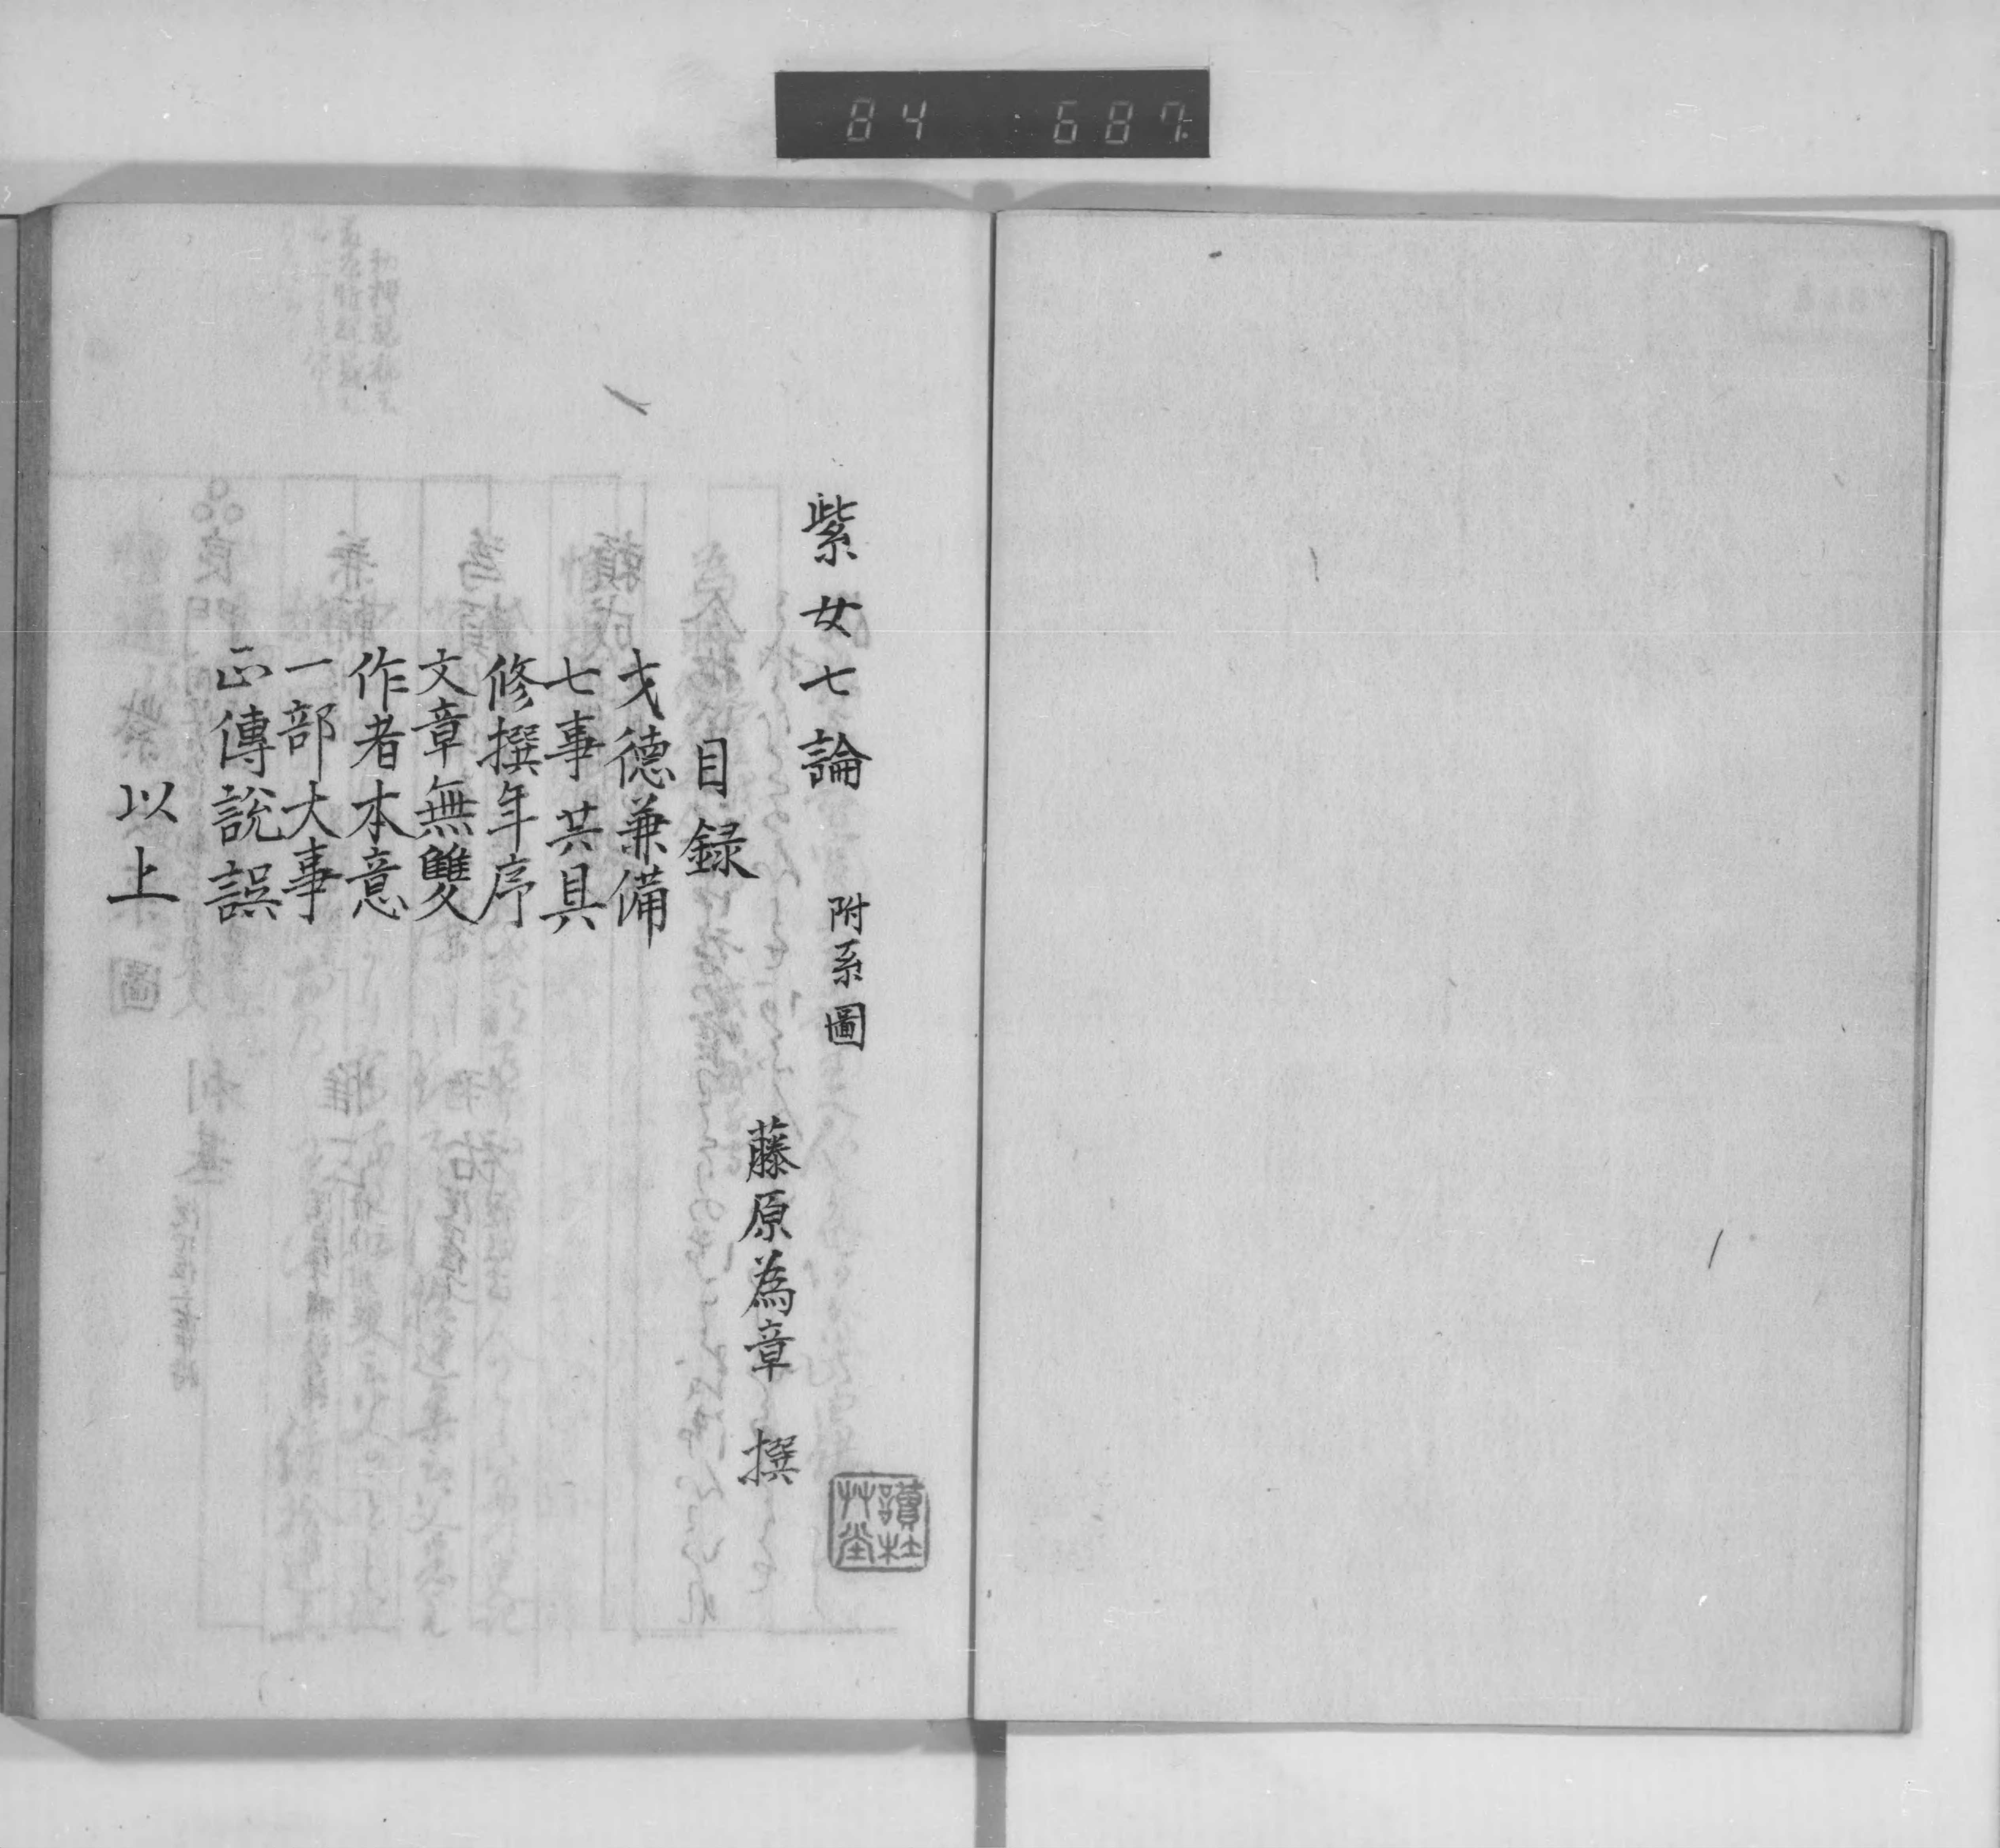 84 687
紫女七論 附系圖
藤原為章 撰
目録
才德兼備
七事共具
修撰年序
文章無雙
作者本意
一部大事
正傳説誤
以上
讀杜
艸堂